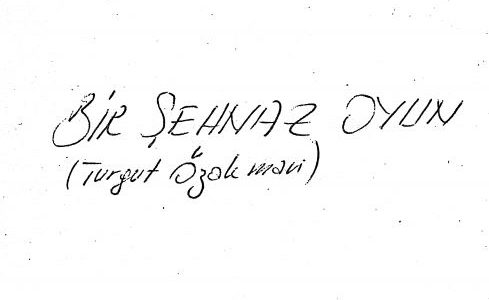 BİR ŞEHNAZ OYUN
(Turgut Özakman)